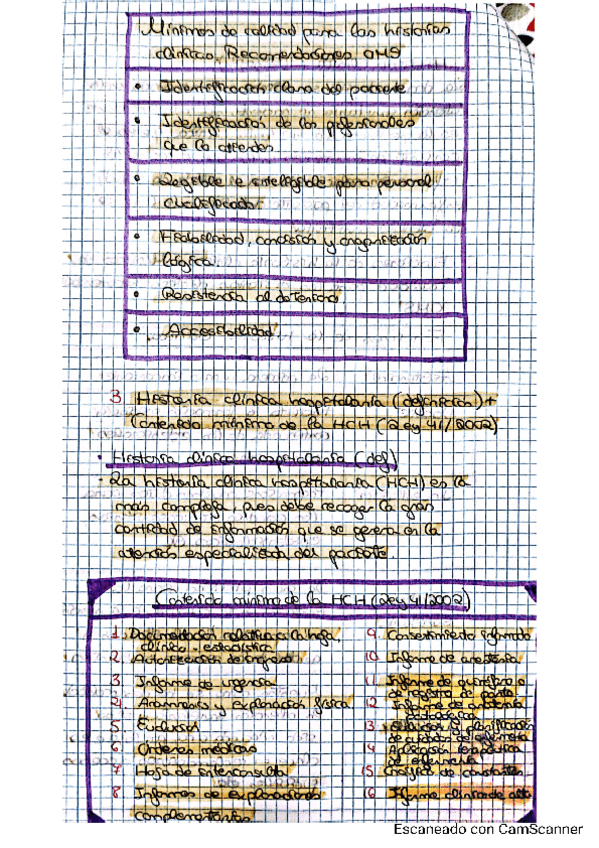 Mínimos de calidad para las historias
clínicas. Recomendaciones OMS
• Identificación clara del paciente
• Identificación de los profesionales
que lo atienden
• Legible e inteligible para personal
cualificado.
• Fiabilidad, concisión y organización
lógica.
• Resistencia al deterioro
• Accesibilidad.
3. Historia clínica hospitalaria (definición) +
Contenido mínimo de la HCH (Ley 41/2002)
• Historia clínica hospitalaria (def)
• La historia clínica hospitalaria (HCH) es la
más compleja, pues debe recoger la gran
cantidad de información que se genera en la
atención especializada del paciente.
Contenido mínimo de la HCH (Ley 41/2002)
1. Documentación relativa a la hoja
clínico-estadística
2. Autorización de ingreso
3. Informe de urgencia
4. Anamnesis y exploración física
5. Evolución
6. Órdenes médicas
7 Hoja de interconsulta
8 Informes de exploraciones
complementarias
9. Consentimiento informado
10. Informe de anestesia
11. Informe de quirófano o
de registro de parto.
12. Informe de anatomía
patológica
13. Evolución y planificación
de cuidados de enfermería
14 Aplicación terapéutica
de enfermería
15 Gráfico de constantes.
16 Informe clínico de alta
Escaneado con CamScanner